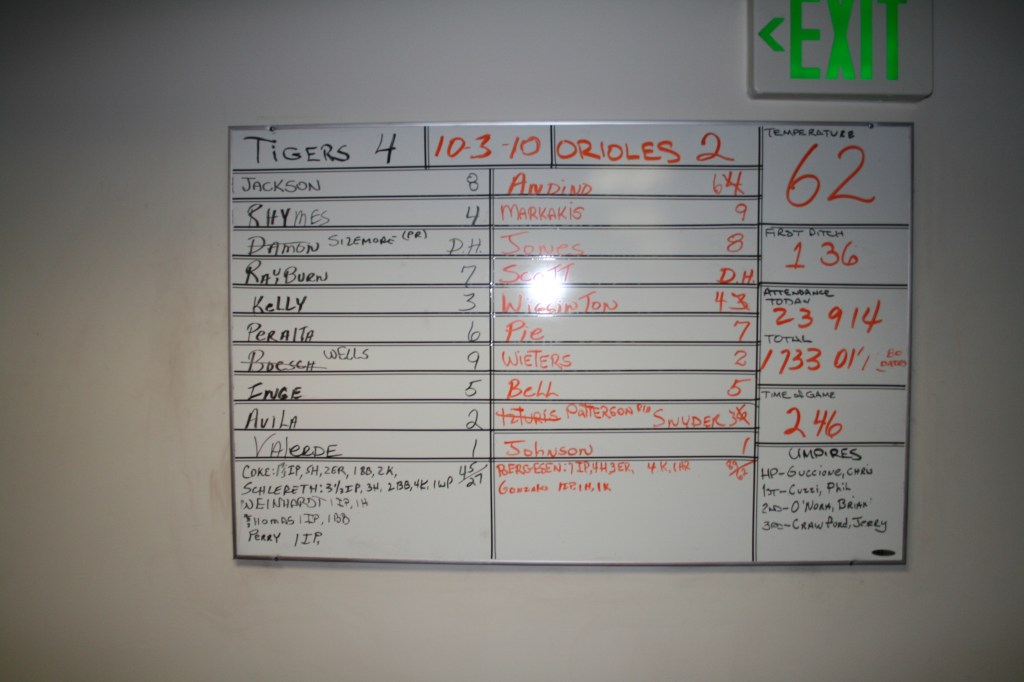 <EXIT
TIGERS 4 10-3-10 ORIOLES 2
TEMPERATURE
62
JACKSON 8
ANDINO 64
RHYMES 4
MARKAKIS 9
DAMON SIZEMORE (PR) D.H.
JONES 8
FIRST PITCH
1 36
RAYBURN 7
SCOTT D.H.
KELLY 3
WIGGINTON 43
ATTENDANCE
TODAY
23 914
PERALTA 6
PIE 7
TOTAL
1733 01 80 DATES
BOESCH WELLS 9
WIETERS 2
INGE 5
BELL 5
TIME of GAME
2 46
AVILA 2
IZTURIS PATTERSON PH SNYDER 3
VALERDE 1
JOHNSON 1
COKE: IP, 5H, 2ER, 1BB, 2K, 45/27
SCHLERETH: 3 1/3 IP, 3H, 2BB, 4K, 1WP
WEINHARDT 1IP, 1H
THOMAS 1IP, 1BB
PERRY 1IP,
BERGESEN: 7IP, 4H, 3ER, 4K, 1HR
GONZALO 1IP, 1H, 1K
UMPIRES
HP-GUCCIONE, CHRIS
1ST-CUZZI, PHIL
2ND-O'NORA, BRIAN
3RD-CRAWFORD, JERRY